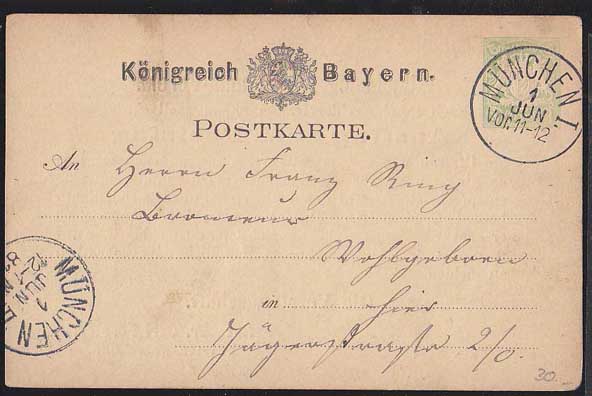 Königreich Bayern.
MÜNCHEN I.
1
JUN
Vor. 11-12
POSTKARTE.
An Herrn Franz Ring
Wohlgeboren
in hier
Jägerstrasse 2/0.
MÜNCHEN II
1
JUN
12-1
30